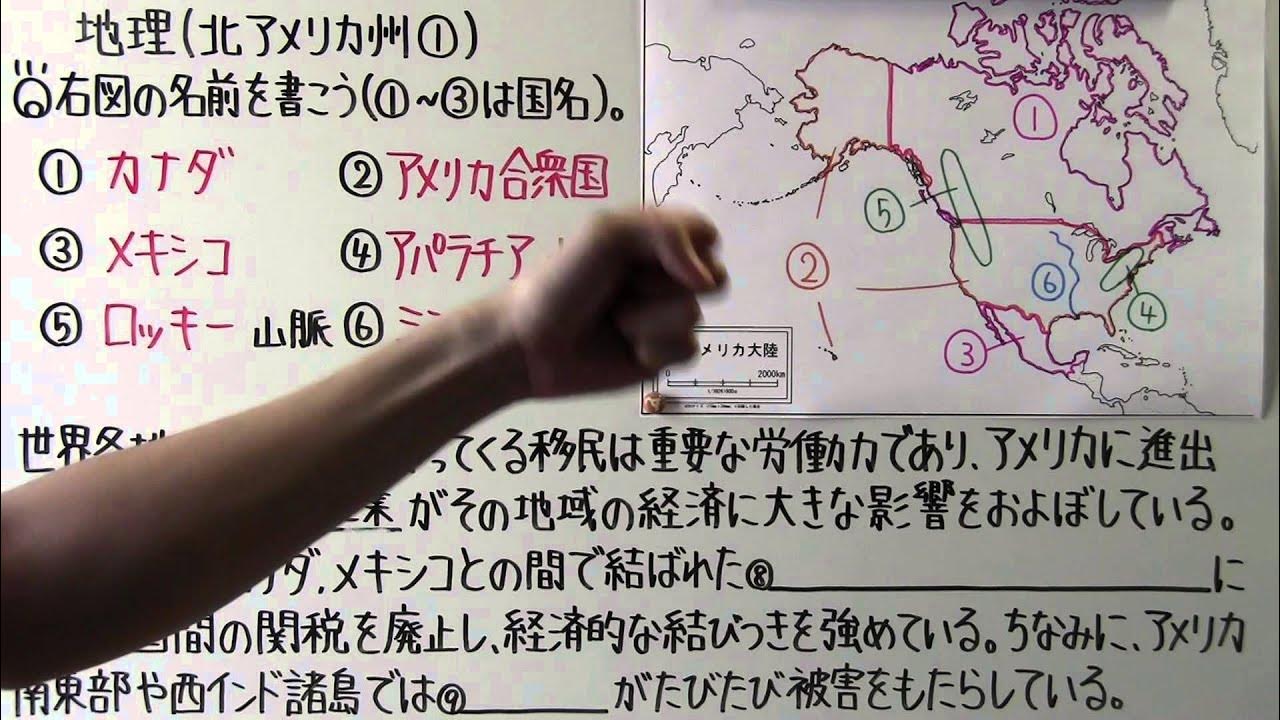 地理(北アメリカ州①)
右図の名前を書こう(①~③は国名)。
① カナダ ② アメリカ合衆国
③ メキシコ ④ アパラチア
⑤ ロッキー 山脈 ⑥ ミ
世界各
ってくる移民は重要な労働力であり、アメリカに進出
業がその地域の経済に大きな影響をおよぼしている。
ダ、メキシコとの間で結ばれた⑧ に
間の関税を廃止し、経済的な結びつきを強めている。ちなみに、アメリカ
南東部や西インド諸島では⑨ がたびたび被害をもたらしている。
①
⑤
②
⑥
④
③
メリカ大陸
0 2000km